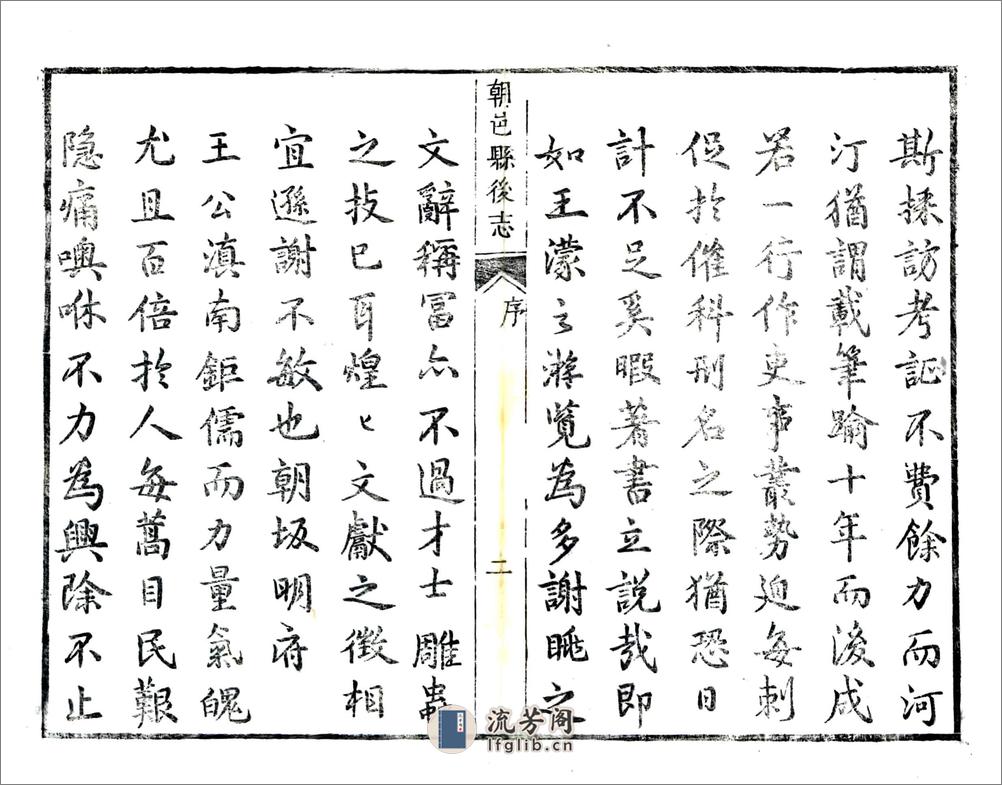 斯採訪考証不費餘力而河
汀猶謂載筆踰十年而後成
若一行作吏事叢勢迫每刺
促扵催科刑名之際猶恐日
計不足奚暇著書立説哉即
如王濛之游覧為多謝眺之
朝邑縣後志
序
二
文辭稱冨亦不過才士雕蟲
之技已耳煌〻文獻之徴相
宜遜謝不敏也朝坂明府
王公滇南鉅儒而力量氣魄
尤且百倍扵人每蒿目民艱
隐痛噢咻不力為興除不止
流芳阁
lfglib.cn